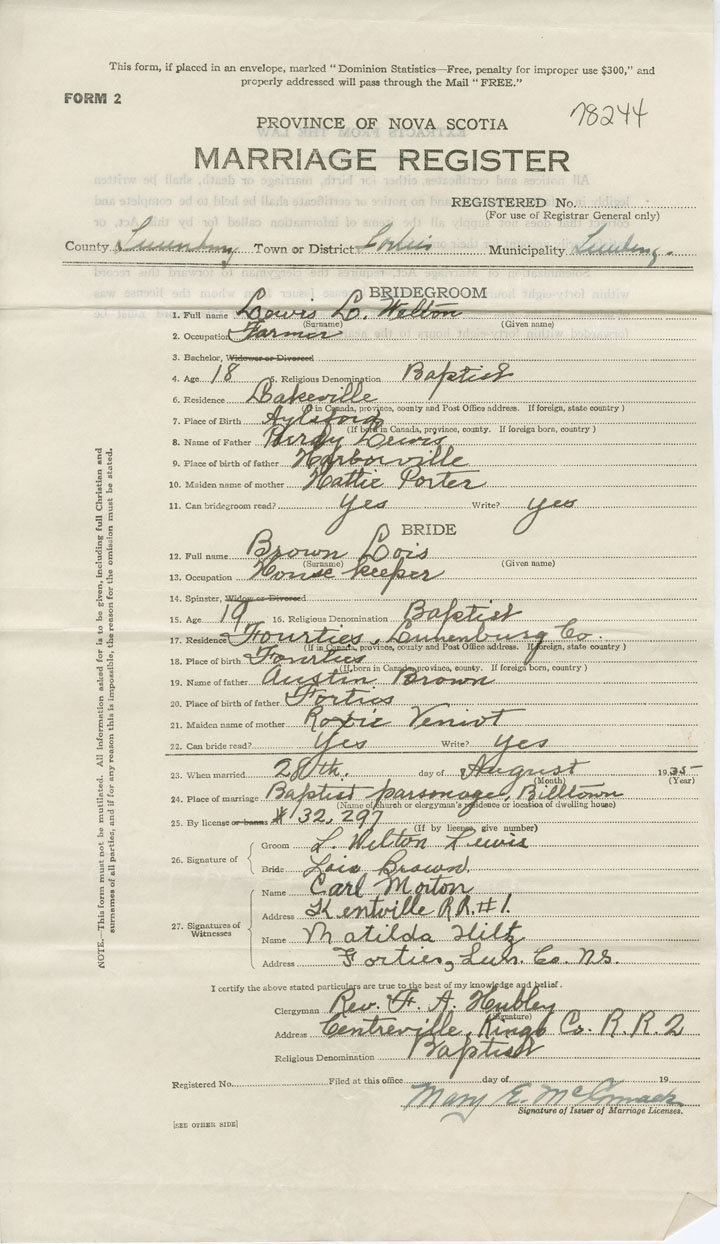 This form, if placed in an envelope, marked "Dominion Statistics—Free, penalty for improper use $300," and
properly addressed will pass through the Mail "FREE."
FORM 2
78244
PROVINCE OF NOVA SCOTIA
MARRIAGE REGISTER
REGISTERED No.
(For use of Registrar General only)
County Lunenburg Town or District Forties Municipality Lunbng.
BRIDEGROOM
1. Full name Lewis L. Welton
(Surname) (Given name)
2. Occupation Farmer
3. Bachelor, Widower or Divorced
4. Age 18 5. Religious Denomination Baptist
6. Residence Lakeville
(If in Canada, province, county and Post Office address. If foreign, state country)
7. Place of Birth Aylsford
(If born in Canada, province, county. If foreign born, country)
8. Name of Father Purdy Lewis
9. Place of birth of father Harborville
10. Maiden name of mother Hattie Porter
11. Can bridegroom read? Yes Write? yes
BRIDE
12. Full name Brown Lois
(Surname) (Given name)
13. Occupation House keeper
14. Spinster, Widow or Divorced
15. Age 19 16. Religious Denomination Baptist
17. Residence Fourties, Lunenburg Co.
(If in Canada, province, county and Post Office address. If foreign, state country)
18. Place of birth Fourties
(If born in Canada, province, county. If foreign born, country)
19. Name of father Austin Brown
20. Place of birth of father Forties
21. Maiden name of mother Roxie Veniot
22. Can bride read? Yes Write? yes
23. When married 28th. day of August 1935
(Month) (Year)
24. Place of marriage Baptist parsonage, Billtown
(Name of church or clergyman's residence or location of dwelling house)
25. By license or banns # 32,297
(If by license, give number)
26. Signature of
Groom L. Welton Lewis
Bride Lois Brown.
27. Signatures of Witnesses
Name Carl Morton
Address Kentville R.R.#1.
Name Matilda Hiltz
Address Forties, Lun. Co. N.S.
I certify the above stated particulars are true to the best of my knowledge and belief.
Clergyman Rev. F. A. Hubley
(Signature)
Address Centreville, Kings Co. R.R.2
Religious Denomination Baptist
Registered No. Filed at this office day of 19
Mary E. McCormack
Signature of Issuer of Marriage Licenses.
[SEE OTHER SIDE]
NOTE.—This form must not be mutilated. All information asked for is to be given, including full Christian and
surnames of all parties, and if for any reason this is impossible, the reason for the omission must be stated.